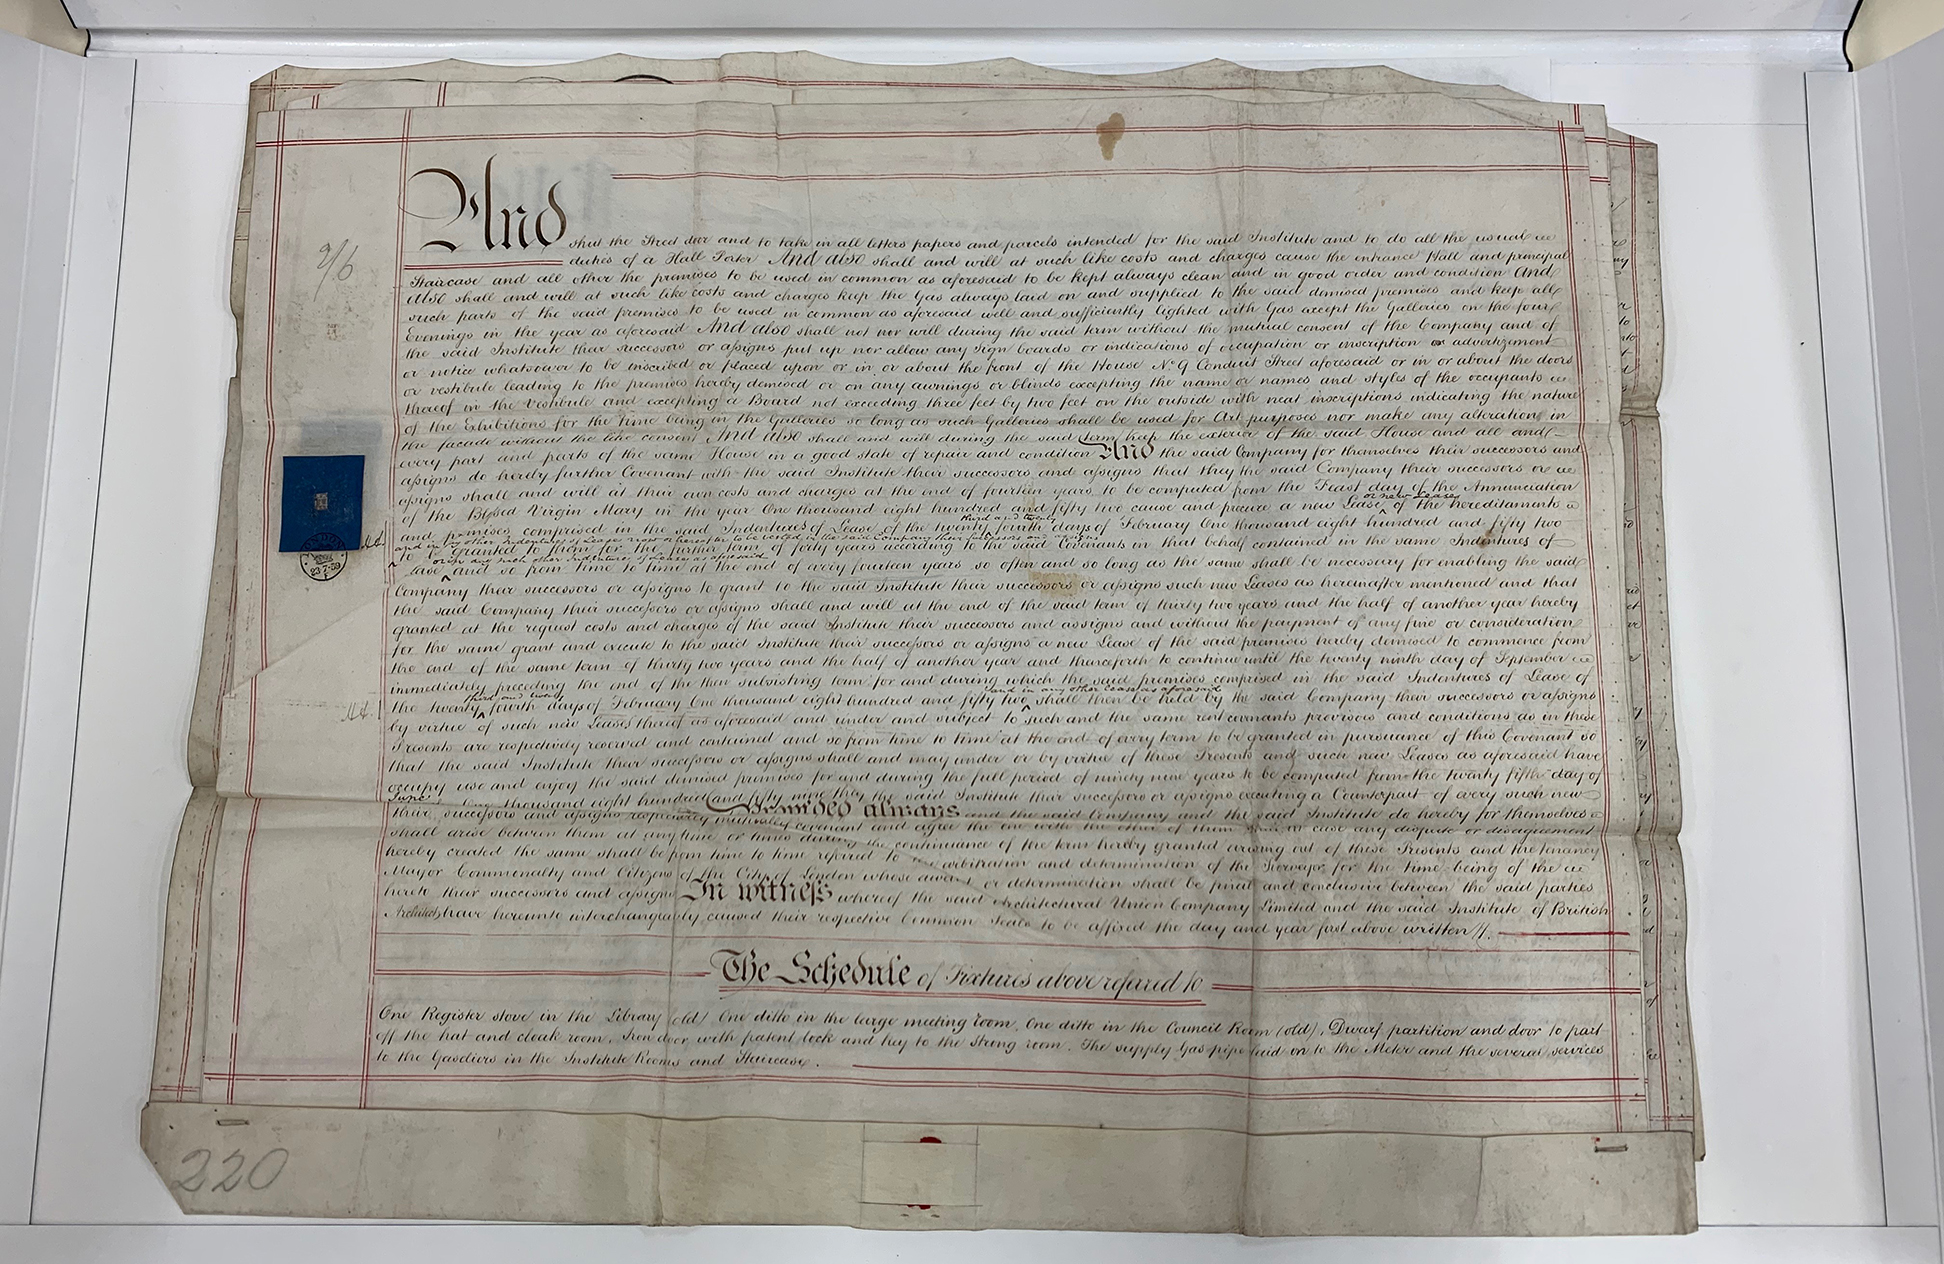 And shut the Street door and to take in all letters papers and parcels intended for the said Institute and to do all the usual
duties of a Hall Porter And also shall and will at such like costs and charges cause the entrance Hall and principal
Staircase and all other the premises to be used in common as aforesaid to be kept always clean and in good order and condition And
Also shall and will at such like costs and charges keep the Gas always laid on and supplied to the said demised premises and keep all
such parts of the said premises to be used in common as aforesaid well and sufficiently lighted with Gas except the Galleries on the four
Evenings in the year as aforesaid And also shall not nor will during the said term without the mutual consent of the Company and of
the said Institute their successors or assigns put up nor allow any sign boards or indications of occupation or inscription or advertizement
or notice whatsoever to be inscribed or placed upon or in or about the front of the House No. 9 Conduit Street aforesaid or in or about the doors
or vestibule leading to the premises hereby demised or on any awnings or blinds excepting the name or names and styles of the occupants
thereof in the vestibule and excepting a Board not exceeding three feet by two feet on the outside with neat inscriptions indicating the nature
of the Exhibitions for the time being in the Galleries so long as such Galleries shall be used for Art purposes nor make any alteration in
the facade without the like consent And also shall and will during the said term keep the exterior of the said House and all and
every part and parts of the same House in a good state of repair and condition And the said Company for themselves their successors and
assigns do hereby further Covenant with the said Institute their successors and assigns that they the said Company their successors or
assigns shall and will at their own costs and charges at the end of fourteen years to be computed from the Feast day of the Annunciation
or new Leases
of the Blessed Virgin Mary in the year One thousand eight hundred and fifty two cause and procure a new Lease of the hereditaments
third and twenty
and premises comprised in the said Indentures of Lease of the twenty fourth days of February One thousand eight hundred and fifty two
and in any other Indentures of Lease now or hereafter to be vested in the said Company their successors or assigns
to granted to them for the further term of forty years according to the said Covenants in that behalf contained in the same Indentures of
or in any such other Indenture of Lease as aforesaid
Lease and so from time to time at the end of every fourteen years so often and so long as the same shall be necessary for enabling the said
Company their successors or assigns to grant to the said Institute their successors or assigns such new Leases as hereinafter mentioned and that
the said Company their successors or assigns shall and will at the end of the said term of thirty two years and the half of another year hereby
granted at the request costs and charges of the said Institute their successors and assigns and without the payment of any fine or consideration
for the same grant and execute to the said Institute their successors or assigns a new Lease of the said premises hereby demised to commence from
the end of the same term of thirty two years and the half of another year and thenceforth to continue until the twenty ninth day of September
immediately preceding the end of the then subsisting term for and during which the said premises comprised in the said Indentures of Lease of
third and twenty
and in any other Lease as aforesaid
the twenty fourth days of February One thousand eight hundred and fifty two shall then be held by the said Company their successors or assigns
by virtue of such new Leases thereof as aforesaid and under and subject to such and the same rent covenants provisoes and conditions as in these
Presents are respectively reserved and contained and so from time to time at the end of every term to be granted in pursuance of this Covenant so
that the said Institute their successors or assigns shall and may under or by virtue of these Presents and such new Leases as aforesaid have
occupy use and enjoy the said demised premises for and during the full period of ninety nine years to be computed from the twenty fifth day of
June One thousand eight hundred and fifty nine they the said Institute their successors or assigns executing a Counterpart of every such new
Provided always and the said Company and the said Institute do hereby for themselves
their successors and assigns respectively mutually covenant and agree the one with the other of them in case any dispute or disagreement
shall arise between them at any time or times during the continuance of the term hereby granted arising out of these Presents and the tenancy
hereby created the same shall be from time to time referred to the arbitration and determination of the Surveyor for the time being of the
Mayor Commonalty and Citizens of the City of London whose award or determination shall be final and conclusive between the said parties
hereto their successors and assigns In witness whereof the said Architectural Union Company Limited and the said Institute of British
Architects have hereunto interchangeably caused their respective Common Seals to be affixed the day and year first above written
The Schedule of Fixtures above referred to
One Register stove in the Library (old) One ditto in the large meeting room, One ditto in the Council Room (old), Dwarf partition and door to part
off the hat and cloak room, Iron door with patent lock and key to the Strong room. The supply Gas-pipe laid on to the Meter and the several services
to the Gasaliers in the Institute Rooms and Staircase.
2/6
LONDON
23·7·59
220